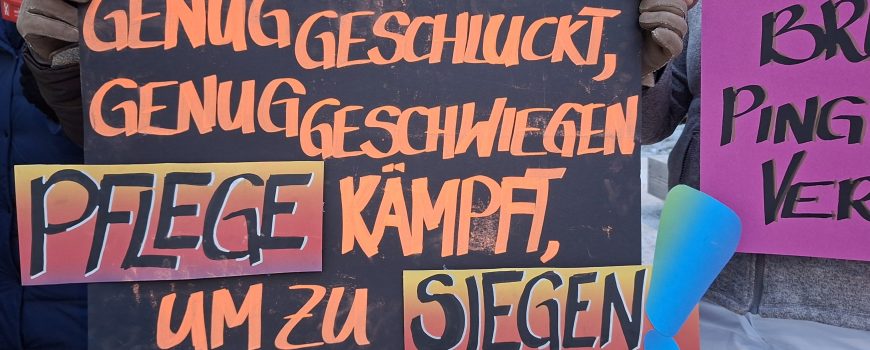 GENUG GESCHLUCKT,
GENUG GESCHWIEGEN
PFLEGE KÄMPFT,
UM ZU SIEGEN
PING